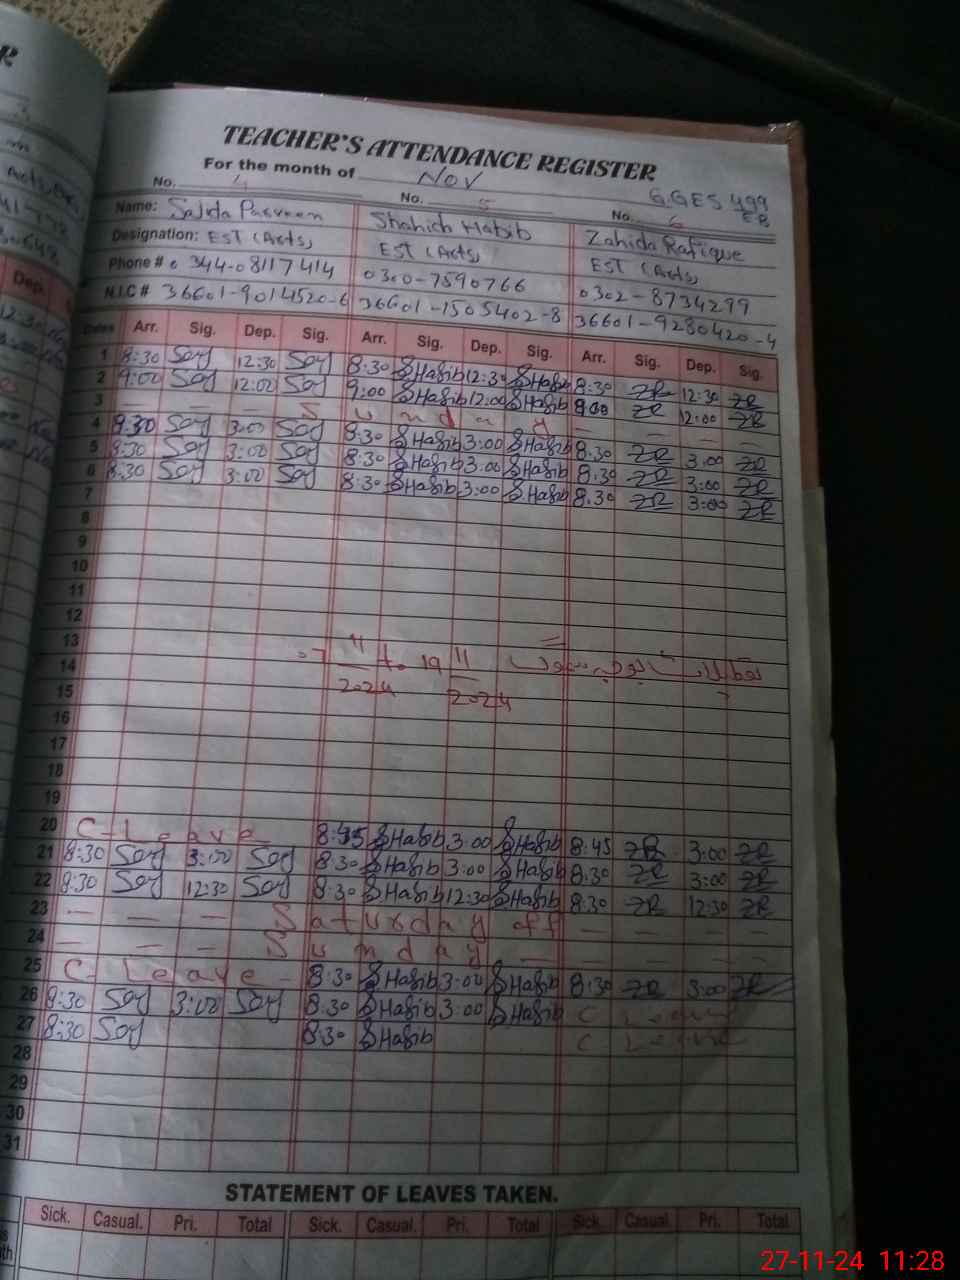 TEACHER'S ATTENDANCE REGISTER
For the month of Nov
G.GES 499 EB
No. 4 No. 5 No. 6
Name: Sajida Parveen Shahida Habib Zahida Rafique
Designation: EST (Arts) EST (Arts) EST (Arts)
Phone # 0344-08117414 0300-7590766 0302-8734299
N.I.C # 36601-9014520-6 36601-1505402-8 36601-9280420-4
Dates Arr. Sig. Dep. Sig. Arr. Sig. Dep. Sig. Arr. Sig. Dep. Sig.
1 8:30 Soy 12:30 Soy 8:30 SHabib 12:30 SHabib 8:30 ZR 12:30 ZR
2 9:00 Soy 12:00 Soy 9:00 SHabib 12:00 SHabib 9:00 ZR 12:00 ZR
3 — — — S u n d a y — — — —
4 8:30 Soy 3:00 Soy 8:30 SHabib 3:00 SHabib 8:30 ZR 3:00 ZR
5 8:30 Soy 3:00 Soy 8:30 SHabib 3:00 SHabib 8:30 ZR 3:00 ZR
6 8:30 Soy 3:00 Soy 8:30 SHabib 3:00 SHabib 8:30 ZR 3:00 ZR
7
8
9
10
11
12
13
14 07 11/2024 to 19 11/2024 تعطیلات بوجہ سموگ
15
16
17
18
19
20 C-Leave 8:45 SHabib 3:00 SHabib 8:45 ZR 3:00 ZR
21 8:30 Soy 3:00 Soy 8:30 SHabib 3:00 SHabib 8:30 ZR 3:00 ZR
22 8:30 Soy 12:30 Soy 8:30 SHabib 12:30 SHabib 8:30 ZR 12:30 ZR
23 — — — Saturday off — — — —
24 — — — Sunday — — — — —
25 C-Leave - 8:30 SHabib 3:00 SHabib 8:30 ZR 3:00 ZR
26 8:30 Soy 3:00 Soy 8:30 SHabib 3:00 SHabib C Leave
27 8:30 Soy 8:30 SHabib C Leave
28
29
30
31
STATEMENT OF LEAVES TAKEN.
Sick. Casual. Pri. Total Sick. Casual. Pri. Total Sick. Casual. Pri. Total
27-11-24 11:28